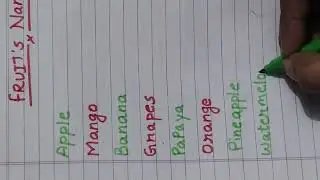 FRUIT's Nam
Apple
Mango
Banana
Grapes
Papaya
Orange
Pineapple
Watermelo